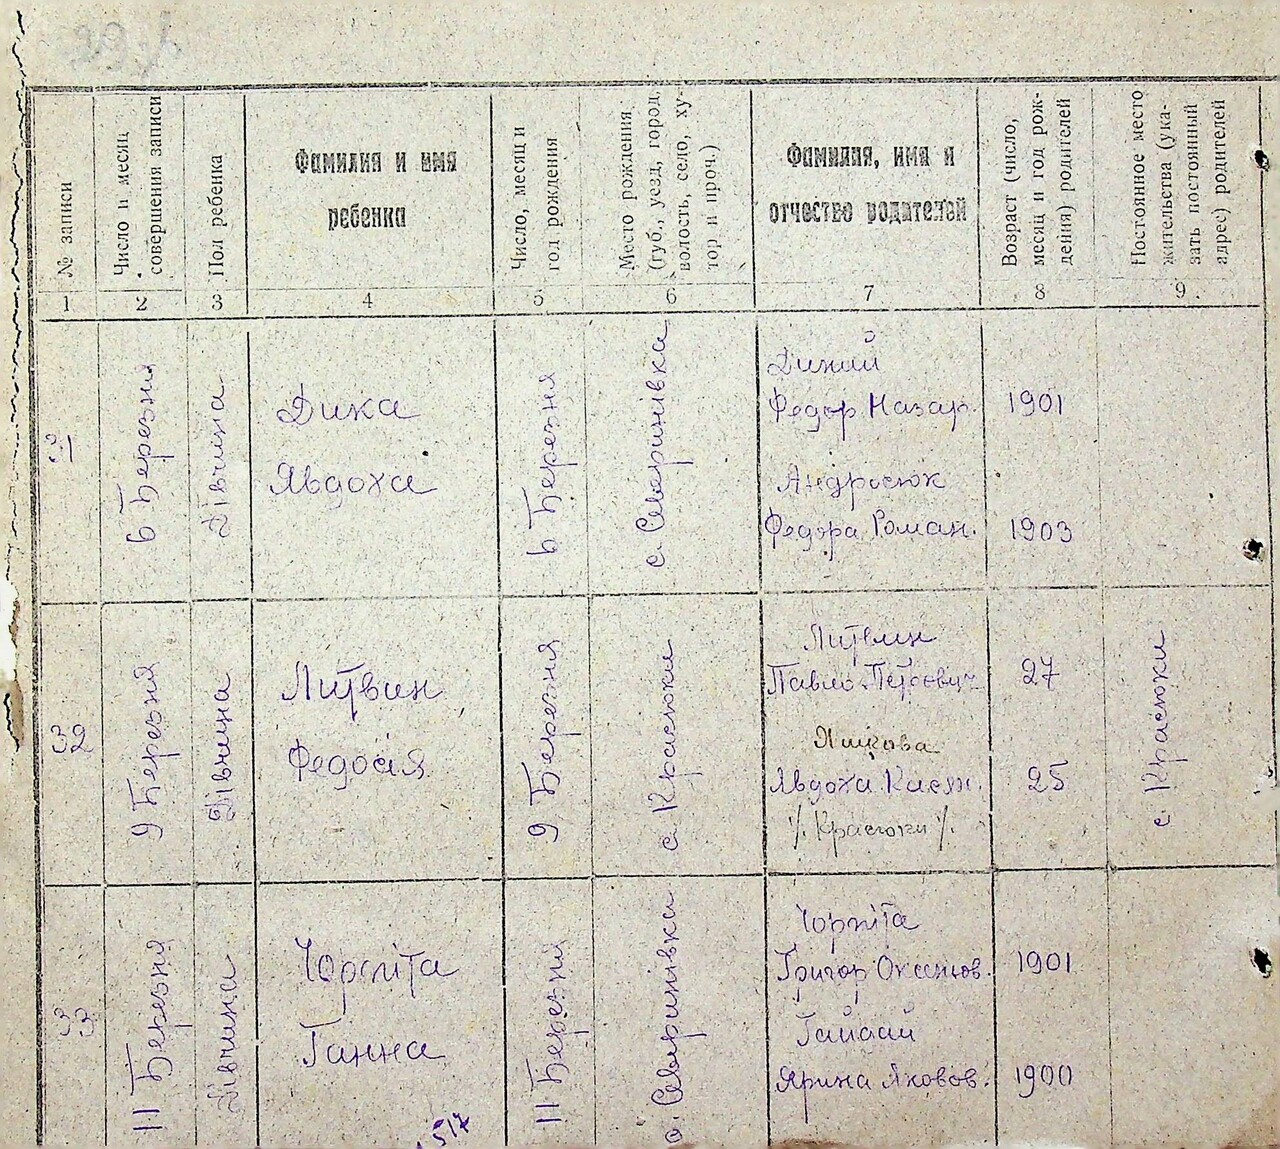 № записи
Число и месяц
совершения записи
Пол ребенка
Фамилия и имя
ребенка
Число, месяц и
год рождения
Место рождения
(губ., уезд, город,
волость, село, ху-
тор и проч.)
Фамилия, имя и
отчество родителей
Возраст (число,
месяц и год рож-
дения) родителей
Постоянное место
жительства (ука-
зать постоянный
адрес) родителей
1 2 3 4 5 6 7 8 9
31
6 Березня
Дівчина
Дика
Явдоха
6 Березня
с. Северинівка
Дикий
Федор Назар.
Андросюк
Федора Роман.
1901
1903
32
9 Березня
Дівчина
Литвин
Федосія
9 Березня
с. Красюки
Литвин
Павло Петрович
Явдоха Касян.
/. Красюки /.
27
25
с. Красюки
33
11 Березня
Дівчина
Чорпіта
Ганна
11 Березня
с. Северинівка
Чорпіта
Григор Оксентов.
Гайдай
Ярина Яковов.
1901
1900
517